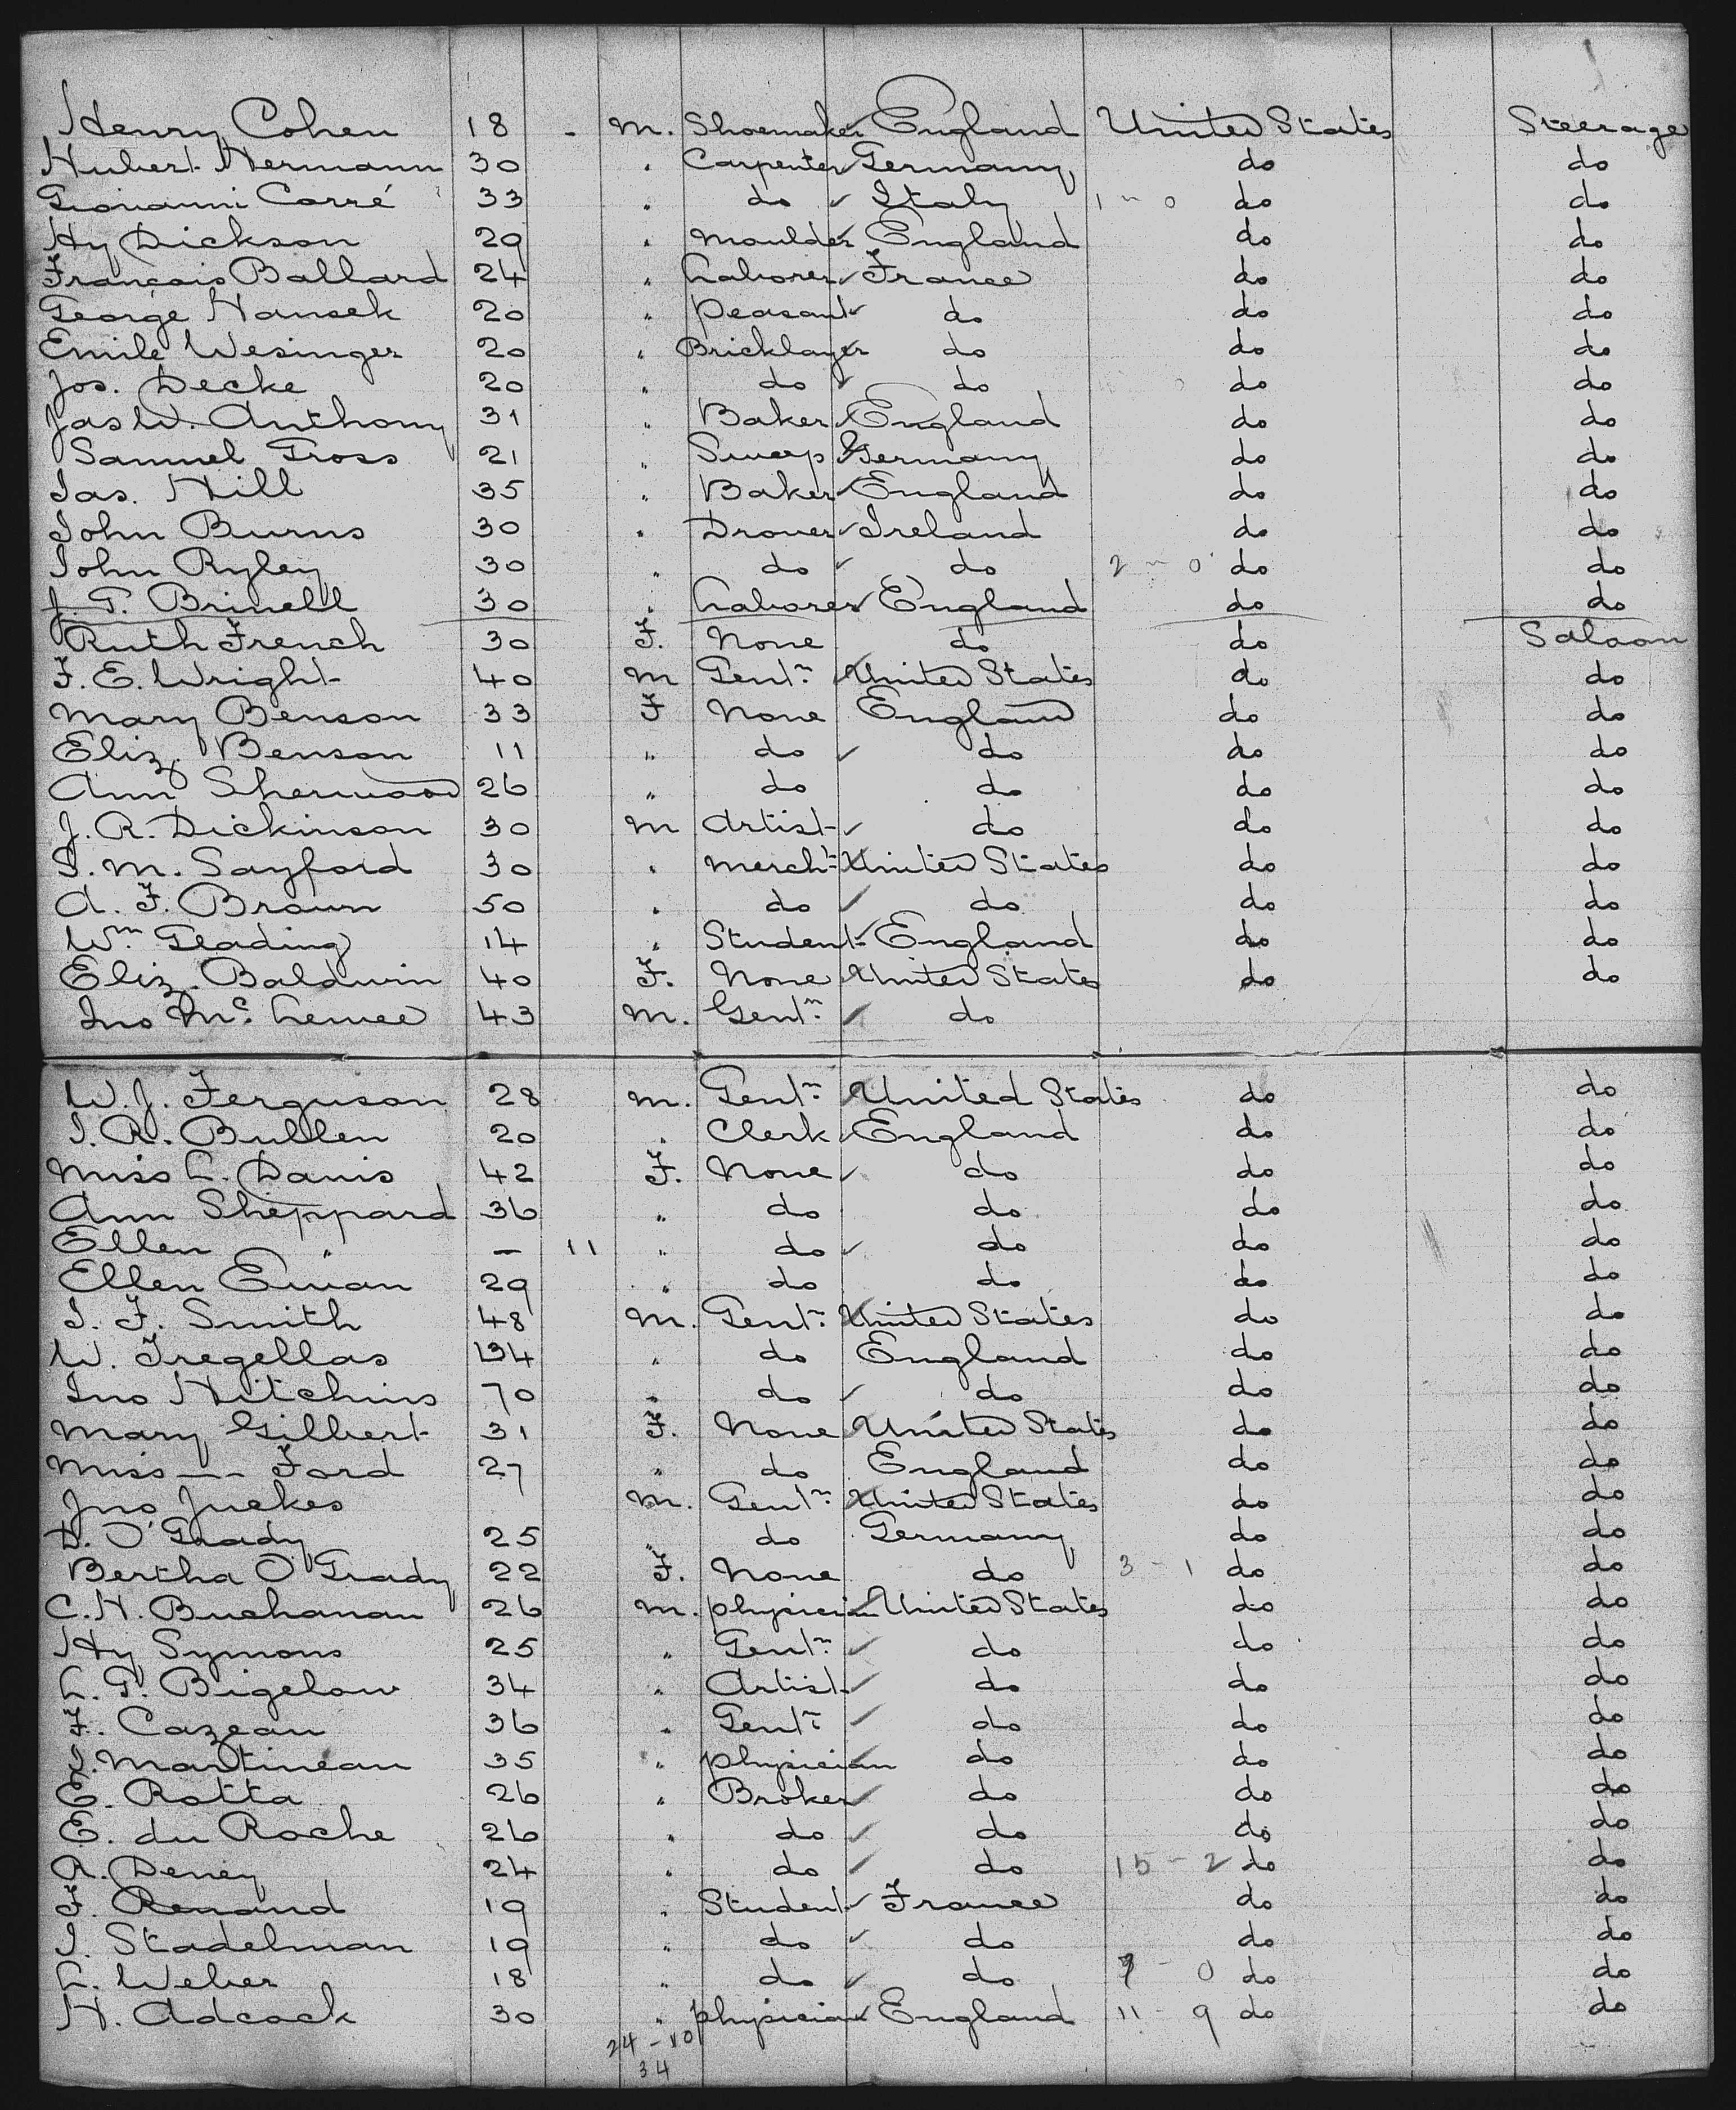 Henry Cohen 18 - M. Shoemaker England United States Steerage
Hubert Hermann 30 " Carpenter Germany do do
Giovanni Corré 33 " do Italy 1 - 0 do do
Hy Dickson 29 " Moulder England do do
François Ballard 24 " Laborer France do do
George Hansek 20 " Peasant do do do
Emile Wesinger 20 " Bricklayer do do do
Jos. Decke 20 " do do do do
Jas W. Anthony 31 " Baker England do do
Samuel Gross 21 " Sweep Germany do do
Jas. Hill 35 " Baker England do do
John Burns 30 " Drover Ireland do do
John Ryley 30 " do do 2 - 0 do do
J. T. Brinell 30 " Laborer England do do
Ruth French 30 F. None do do Saloon
F. E. Wright 40 M Gentn United States do do
Mary Benson 33 F None England do do
Eliz. Benson 11 " do do do do
Ann Sherwood 26 " do do do do
J. R. Dickinson 30 M Artist do do do
S. M. Sayford 30 " Mercht United States do do
A. F. Brown 50 " do do do do
Wm Gleading 14 " Student England do do
Eliz. Baldwin 40 F. None United States do do
Jno Mc. 43 M. Gentn do
W. J. Ferguson 28 M. Gentn United States do do
J. R. Bullen 20 " Clerk England do do
Miss L. Davis 42 F. None do do do
Ann Sheppard 36 " do do do do
Ellen " - 11 " do do do do
Ellen Ewan 29 " do do do do
J. F. Smith 48 M. Gentn United States do do
W. Tregellas 34 " do England do do
Jno Hitchins 70 " do do do do
Mary Gilbert 31 F. None United States do do
Miss -- Ford 27 " do England do do
Jno Juekes M. Gentn United States do do
D. O'Grady 25 " do Germany do do
Bertha O'Grady 22 F. None do 3 - 1 do do
C. H. Buchanan 26 M. Physician United States do do
Hy Symons 25 " Gentn do do do
L. G. Bigelow 34 " Artist do do do
F. Cazeau 36 " Gentn do do do
J. Martineau 35 " Physician do do do
E. Rotta 26 " Broker do do do
E. du Roche 26 " do do do do
A. Deney 24 " do do 15 - 2 do do
F. Renand 19 " Student France do do
J. Stadelman 19 " do do do do
L. Weber 18 " do do 7 - 0 do do
H. Adcock 30 " Physician England 11 - 9 do do
24 - 10
34